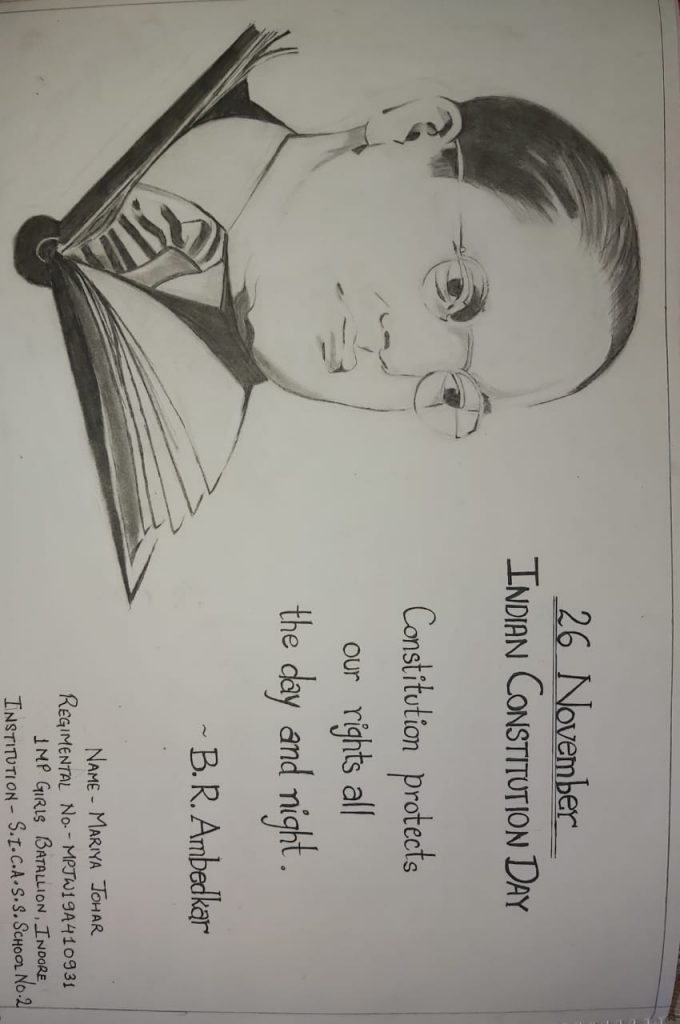 26 November
INDIAN CONSTITUTION DAY
Constitution protects
our rights all
the day and night.
~ B. R. Ambedkar
NAME - MARIYA JOHAR
REGIMENTAL NO.- MPJW19A410931
1 MP GIRLS BATALLION, INDORE
INSTITUTION - S.I.C.A.S.S. SCHOOL NO.2